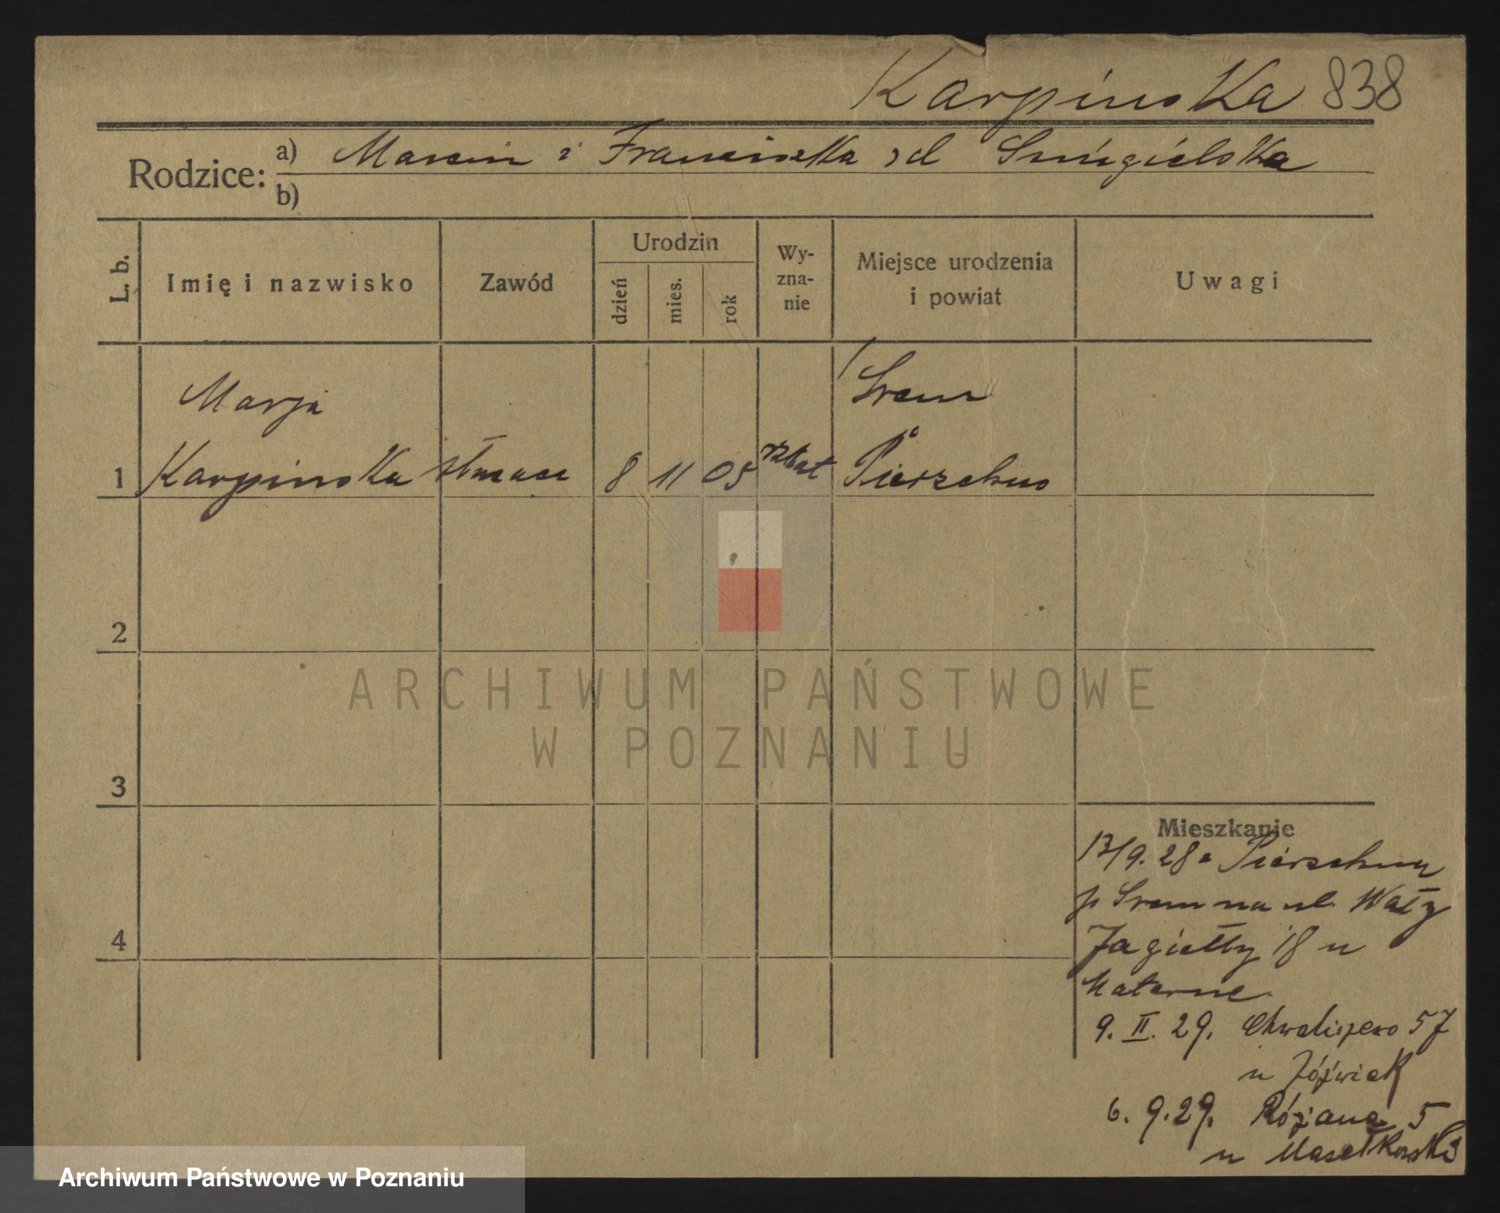 Karpinska 838
Rodzice: a) Marcin i Franciszka zd Śmigielska
b)
L. b. Imię i nazwisko Zawód Urodzin dzień mies. rok Wy-zna-nie Miejsce urodzenia i powiat Uwagi
Marja Śrem
1 Karpinska służąca 8 11 05 rzkat Pierzchno
2
3
4
Mieszkanie
13/9. 28 z Pierzchna
p Śrem na ul. Wały
Jagiełły 18 u
Materne
9. II. 29. Chwaliszewo 57
u Jóźwiak
6. 9. 29. Różana 5
u
ARCHIWUM PAŃSTWOWE
W POZNANIU
Archiwum Państwowe w Poznaniu